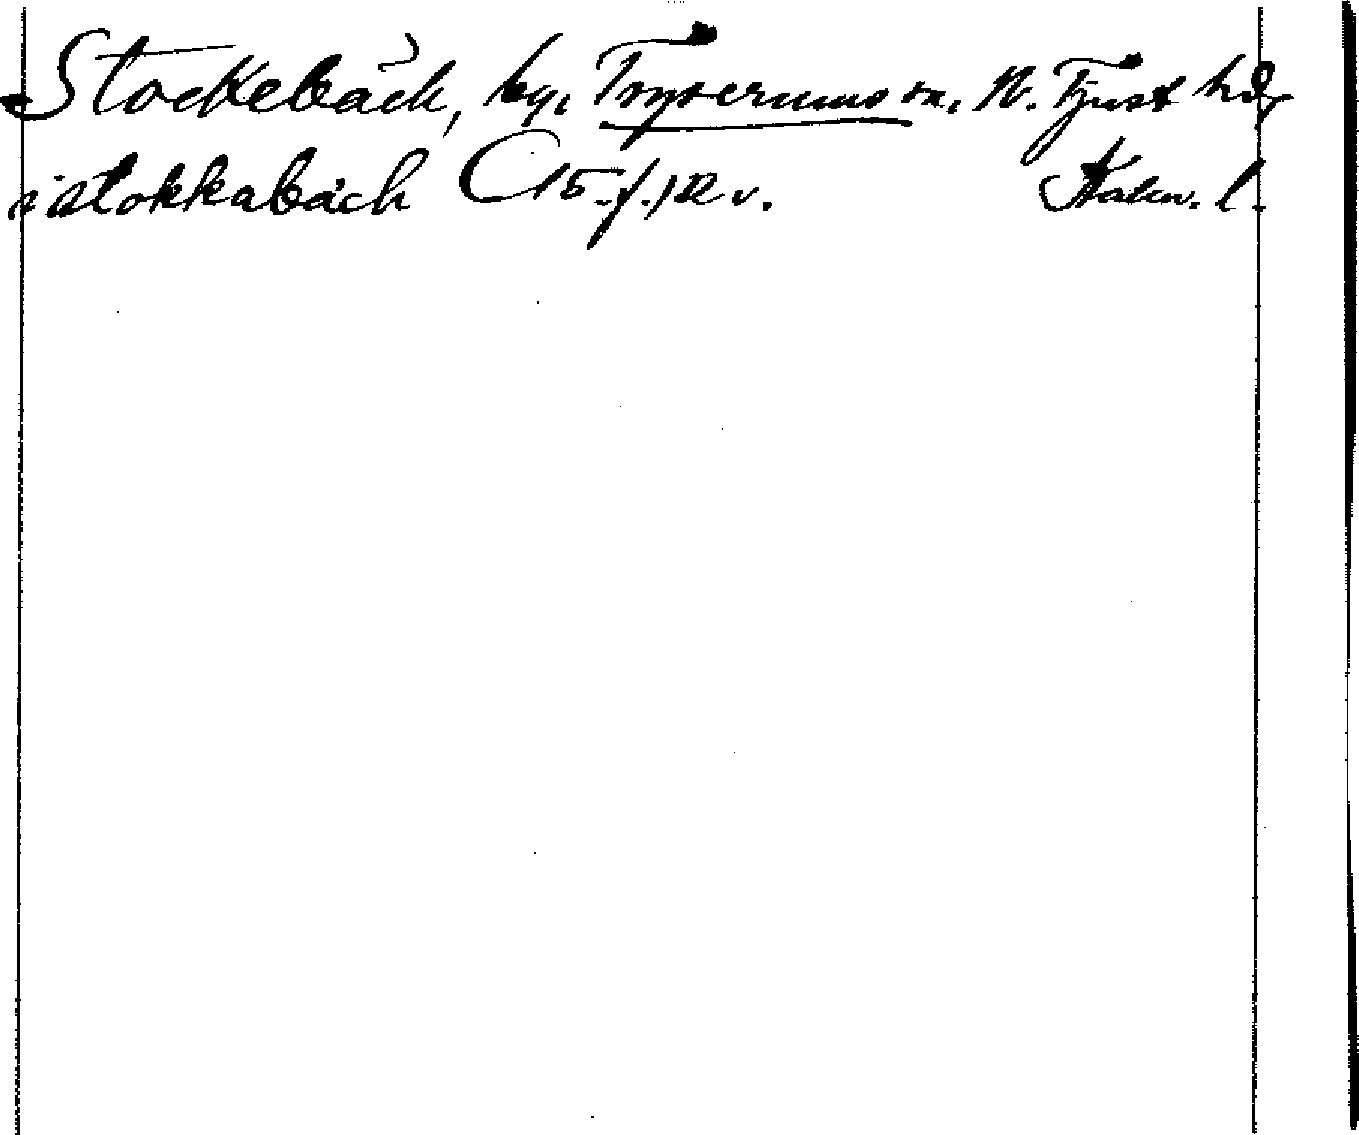 Stockebäck, by, Tryserums sn, N. Tjust hd,
i stokkabäch C 15 f. 12 v. Kalm. l.